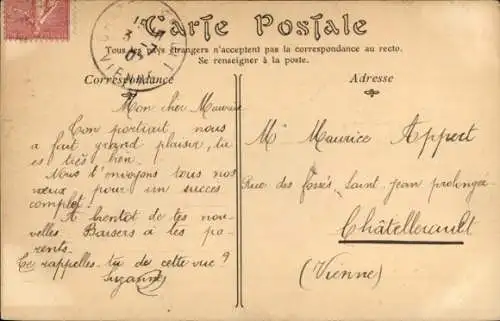 Carte Postale
Tous les pays étrangers n'acceptent pas la correspondance au recto.
Se renseigner à la poste.
Correspondance
Mon cher Maurice
Ton portrait nous
a fait grand plaisir, tu
es très bien.
Nous t'envoyons tous nos
vœux pour un succès
complet.
A bientôt de tes nou-
velles. Baisers à tes pa-
rents.
Te rappelles-tu de cette vue ?
Suzanne
Adresse
Mr Maurice Appert
Rue des fossés Saint Jean prolongée
Châtellerault
(Vienne)
VIENNE